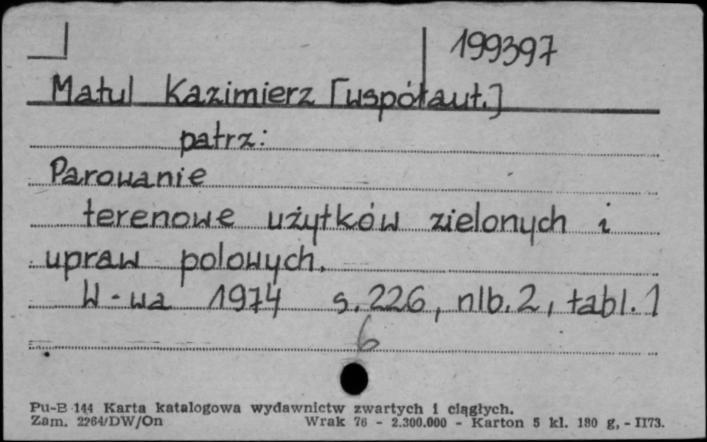 199397
Matul Kazimierz [współaut.]
patrz:
Parowanie
terenowe użytków zielonych i
upraw polowych.
W-wa 1974 s. 226, nlb. 2, tabl. 1
6
Pu-B 144 Karta katalogowa wydawnictw zwartych i ciągłych.
Zam. 2264/DW/On Wrak 76 - 2.300.000 - Karton 5 kl. 180 g, - II73.